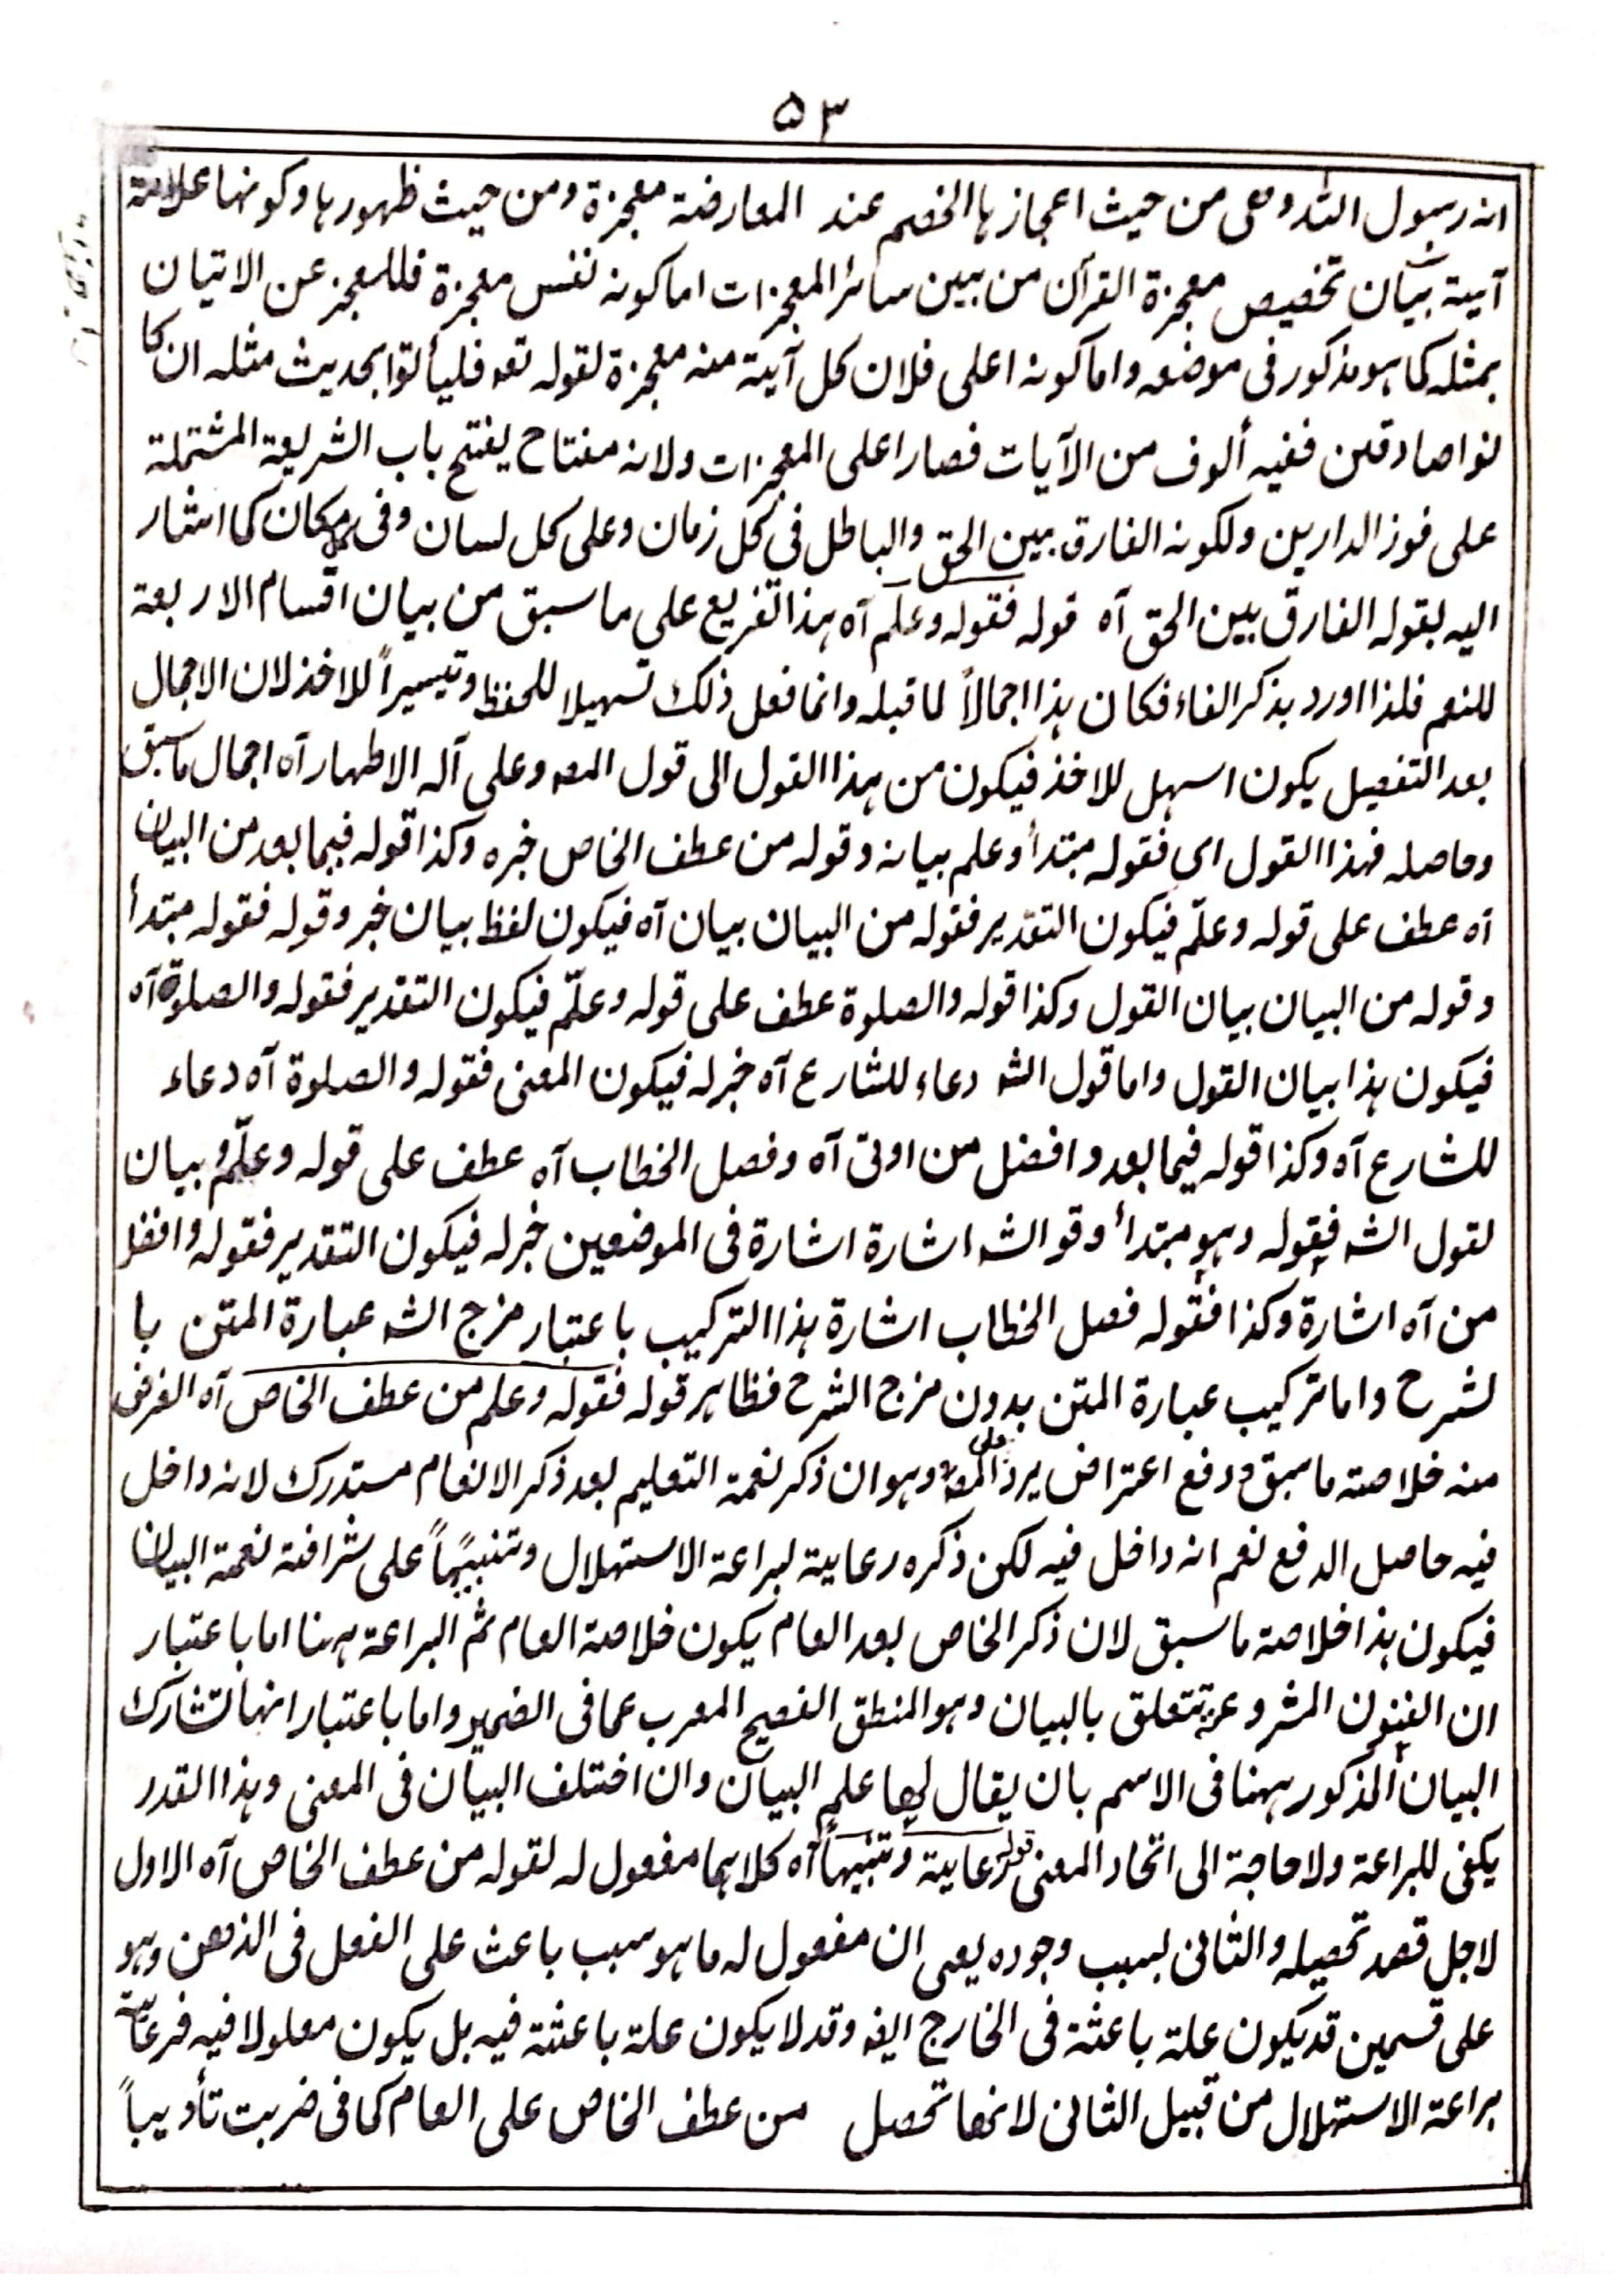 ۵۳
انه رسول الله وهى من حيث اعجازها الخصم عند المعارضة معجزة ومن حيث ظهورها وكونها علامة
آية بيان تخصيص معجزة القرآن من بين سائر المعجزات اما كونه نفس معجزة فللمعجز عن الاتيان
بمثله كما هو مذكور فى موضعه واما كونه اعلى فلان كل آية منه معجزة لقوله تعه فليأتوا بحديث مثله ان كا
نوا صادقين ففيه ألوف من الآيات فصار اعلى المعجزات ولانه مفتاح يفتح باب الشريعة المشتملة
على فوز الدارين ولكونه الفارق بين الحق والباطل في كل زمان وعلى كل لسان وفى مكان كما اشار
اليه بقوله الفارق بين الحق آه قوله فقوله وعلم آه هذا تفريع على ما سبق من بيان اقسام الاربعة
للنعم فلذا اورد بذكر الفاء فكان هذا اجمالاً لما قبله وانما فعل ذلك تسهيلا للحفظ وتيسيراً للاخذ لان الاجمال
بعد التفصيل يكون اسهل للاخذ فيكون من هذا القول الى قول المصه وعلى آله الاطهار آه اجمال ما سبق
وحاصله فهذا القول اى فقوله مبتدأ وعلم بيانه وقوله من عطف الخاص خبره وكذا قوله فيما بعد من البيان
آه عطف على قوله وعلّم فيكون التقدير فقوله من البيان بيان آه فيكون لفظ بيان خبر وقوله فقوله مبتدأ
وقوله من البيان بيان القول وكذا قوله والصلوة عطف على قوله وعلّم فيكون التقدير فقوله والصلوة آه
فيكون هذا بيان القول واما قول الشه دعاء للشارع آه خبر له فيكون المعنى فقوله والصلوة آه دعاء
للشارع آه وكذا قوله فيما بعد وافضل من اوتى آه وفصل الخطاب آه عطف على قوله وعلّم وبيان
لقول الشه فقوله وهو مبتدأ وقو الشه اشارة اشارة فى الموضعين خبر له فيكون التقدير فقوله وافضل
من آه اشارة وكذا فقوله فصل الخطاب اشارة هذا التركيب باعتبار مزج الشه عبارة المتن با
لشرح واما تركيب عبارة المتن بدون مزج الشرح فظاهر قوله فقوله وعلم من عطف الخاص آه الغرض
منه خلاصة ما سبق ودفع اعتراض يرد على المصه وهو ان ذكر نعمة التعليم بعد ذكر الانعام مستدرك لانه داخل
فيه حاصل الدفع نعم انه داخل فيه لكن ذكره رعاية لبراعة الاستهلال وتنبيهاً على شرافة نعمة البيان
فيكون هذا خلاصة ما سبق لان ذكر الخاص بعد العام يكون خلاصة العام ثم البراعة ههنا اما باعتبار
ان الفنون المشروعة تتعلق بالبيان وهو المنطق الفصيح المعرب عما فى الضمير واما باعتبار انها تشارك
البيان المذكور ههنا فى الاسم بان يقال لها علم البيان وان اختلف البيان فى المعنى وهذا القدر
يكفى للبراعة ولا حاجة الى اتحاد المعنى قوله رعاية وتنبيهاً آه كلاهما مفعول له لقوله من عطف الخاص آه الاول
لاجل قصد تحصيله والثانى بسبب وجوده يعى ان مفعول له ما هو سبب باعث على الفعل فى الذهن وهو
على قسمين قد يكون علة باعثة فى الخارج ايضه وقد لا يكون علة باعثة فيه بل يكون معلولا فيه فرعاية
براعة الاستهلال من قبيل الثانى لانها تحصل من عطف الخاص على العام كما فى ضربت تأديباً